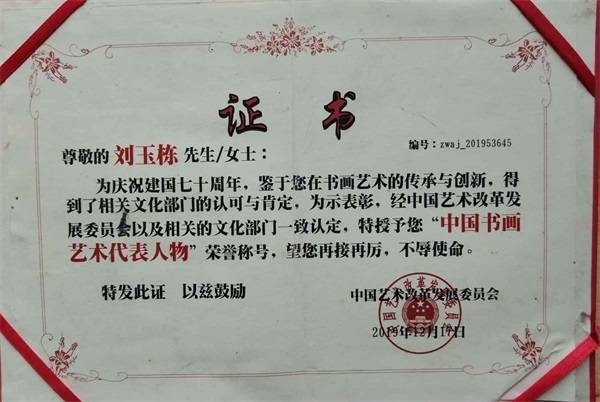 证书
编号：zwaj_201953645
尊敬的 刘玉栋 先生/女士：
为庆祝建国七十周年，鉴于您在书画艺术的传承与创新，得
到了相关文化部门的认可与肯定，为示表彰，经中国艺术改革发
展委员会以及相关的文化部门一致认定，特授予您“中国书画
艺术代表人物”荣誉称号，望您再接再厉，不辱使命。
特发此证 以兹鼓励
中国艺术改革发展委员会
2019年12月17日